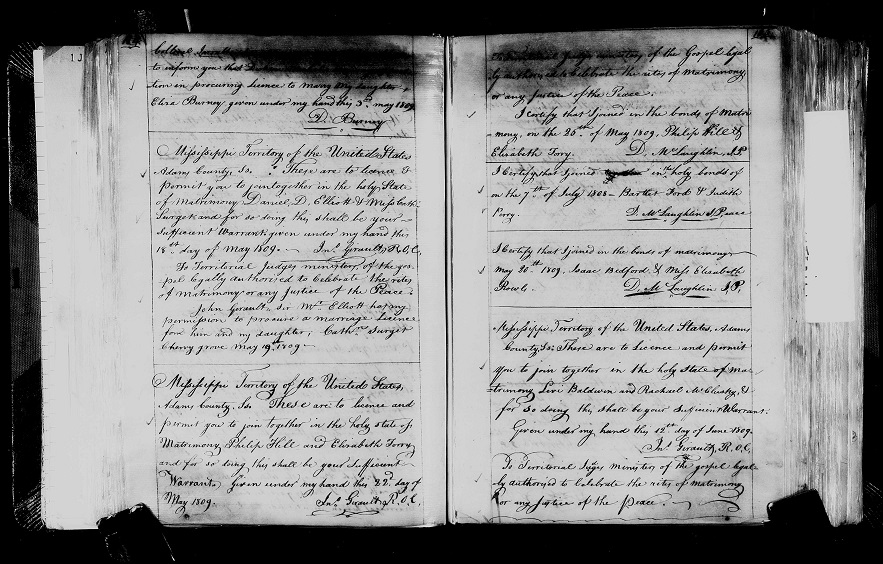 to inform you that
tion in procuring Licence to marry my daughter
Eliza Burney given under my hand this 3d. May 1809
D. Burney
Mississippi Territory of the United States
Adams County, Ss. These are to licence &
permit you to join together in the holy State
of Matrimony Daniel, D, Elliott & Miss Cath:
Surget and for so doing this shall be your
Sufficient Warrant given under my hand this
18th day of May 1809. Jno. Girault, R.O.C.
To Territorial Judges ministers, of the gos-
pel legally authorised to Celebrate the rites
of matrimony or any Justice of the Peace.
John Girault, Sir Mr. Elliott has my
permission to procure a marriage Licence
for him and my daughter, Surget
Cherry grove May 19th 1809
Mississippi Territory of the United States,
Adams County, Ss. These are to licence and
permit you to join together in the holy state of
Matrimony Philip Hill and Elizabeth Forry
and for so doing this shall be your Sufficient
Warrant, Given under my hand this 22d. day of
May 1809. Jno. Girault, R.O.C.
of the Gospel legal
ly authorised to Celebrate the rites of Matrimony,
or any Justice of the Peace.
I certify that I joined in the bonds of Matri
mony, on the 25th of May 1809, Philip Hill &
Elizabeth Forry. D. McLaughlin, J.P.
I Certify, that I joined in the holy bonds of
on the 7th of July 1808 - Bartlet Ford & Judith
Perry. D. McLaughlin J Peace
I Certify that I joined in the bonds of matrimony
May 20th 1809, Isaac Bedford & Miss Elizabeth
Rowls. D. McLaughlin J.P.
Mississippi Territory of the United States, Adams
County, Ss: These are to Licence and permit
you to join together in the holy state of Ma-
trimony Levi Baldwin and Rachael &
for so doing this shall be your Sufficient Warrant:
Given under my hand this 12th day of June 1809.
Jno. Girault, R.O.C.
To Territorial Judges ministers of the gospel legal
ly authorised to Celebrate the rites of matrimony
or any Justice of the peace.